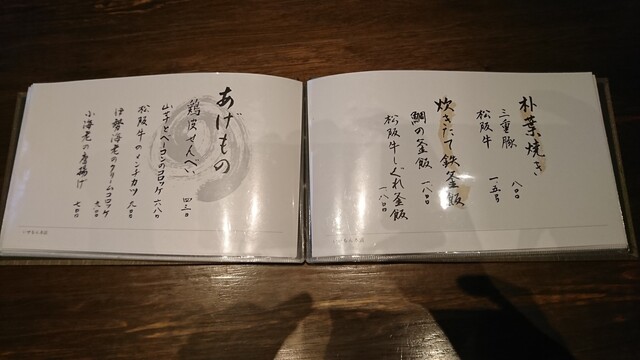 朴葉焼き
三重豚 八〇〇
松阪牛 一五〇〇
炊きたて鉄釜飯
鯛の釜飯 一八〇〇
松阪牛しぐれ釜飯 一八〇〇
あげもの
鶏皮せんべい 四三〇
山芋とベーコンのコロッケ 六八〇
松阪牛のメンチカツ 九〇〇
伊勢海老のクリームコロッケ 九〇〇
小海老の唐揚げ 七〇〇